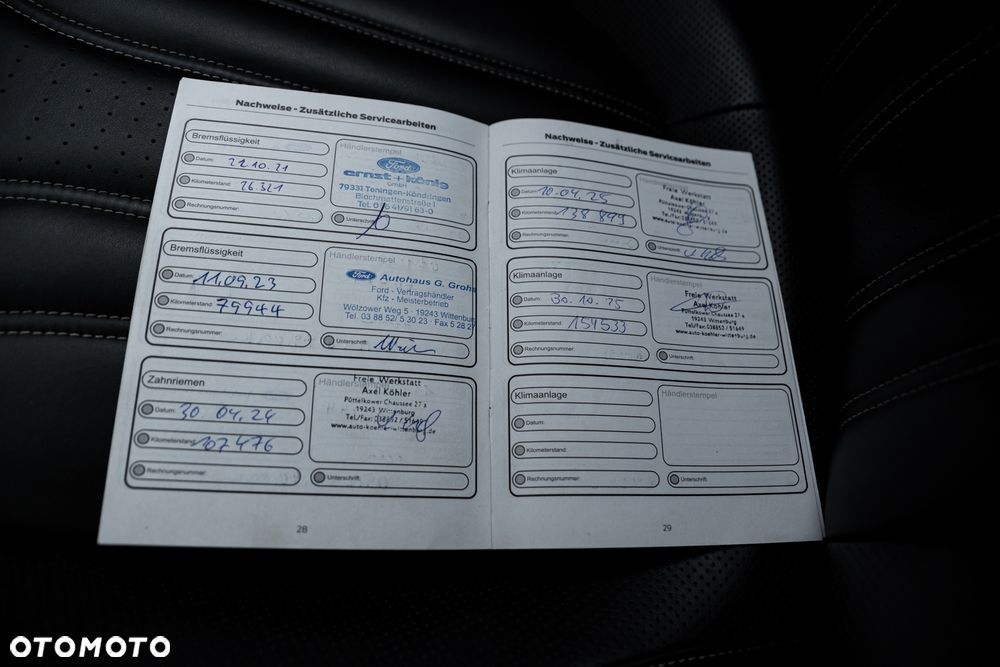 Nachweise - Zusätzliche Servicearbeiten
Bremsflüssigkeit
Datum: 22.10.21
Kilometerstand: 26.321
Rechnungsnummer:
Händlerstempel
Ford
ernst + könig
GmbH
79331 Teningen-Köndringen
Blochmattenstraße 1
Tel. 0 76 41/91 63-0
Unterschrift:
Bremsflüssigkeit
Datum: 11.09.23
Kilometerstand: 79944
Rechnungsnummer:
Händlerstempel
Ford Autohaus G. Grohs
Ford - Vertragshändler
Kfz - Meisterbetrieb
Wölzower Weg 5 · 19243 Wittenburg
Tel. 03 88 52/ 5 30 23 · Fax 5 28 27
Unterschrift:
Zahnriemen
Datum: 30 04.24
Kilometerstand: 107476
Rechnungsnummer:
Händlerstempel
Freie Werkstatt
Axel Köhler
Püttelkower Chaussee 27 a
19243 Wittenburg
Tel./Fax: 038852 / 51649
www.auto-koehler-wittenburg.de
Unterschrift:
28
Nachweise - Zusätzliche Servicearbeiten
Klimaanlage
Datum: 10.04.25
Kilometerstand: 138 899
Rechnungsnummer:
Händlerstempel
Freie Werkstatt
Axel Köhler
Püttelkower Chaussee 27 a
19243 Wittenburg
www.auto-koehler-wittenburg.de
Unterschrift:
Klimaanlage
Datum: 30.10.25
Kilometerstand: 154533
Rechnungsnummer:
Händlerstempel
Freie Werkstatt
Axel Köhler
Püttelkower Chaussee 27 a
19243 Wittenburg
Tel./Fax: 038852 / 51649
www.auto-koehler-wittenburg.de
Unterschrift:
Klimaanlage
Datum:
Kilometerstand:
Rechnungsnummer:
Händlerstempel
Unterschrift:
29
OTOMOTO